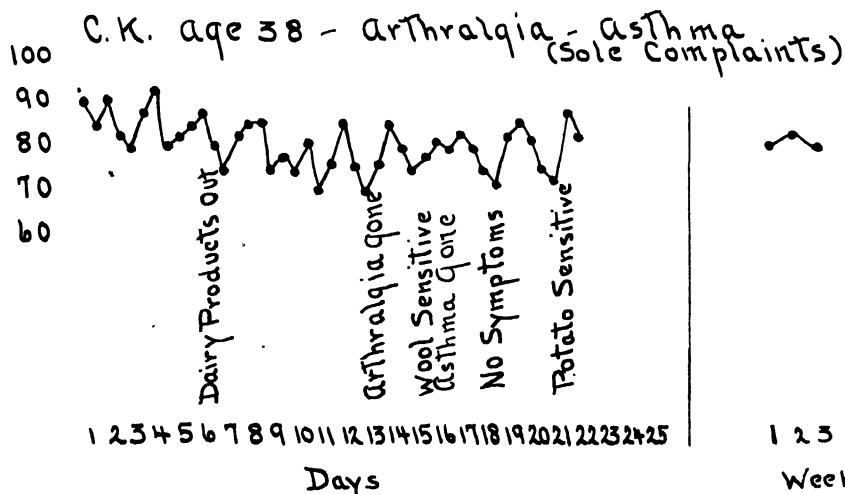 C.K. age 38 - Arthralgia - Asthma
(Sole Complaints)
100
90
80
70
60
Dairy Products Out
Arthralgia gone
Wool Sensitive
Asthma Gone
No Symptoms
Potato Sensitive
1 2 3 4 5 6 7 8 9 10 11 12 13 14 15 16 17 18 19 20 21 22 23 24 25
1 2 3
Days
Weel